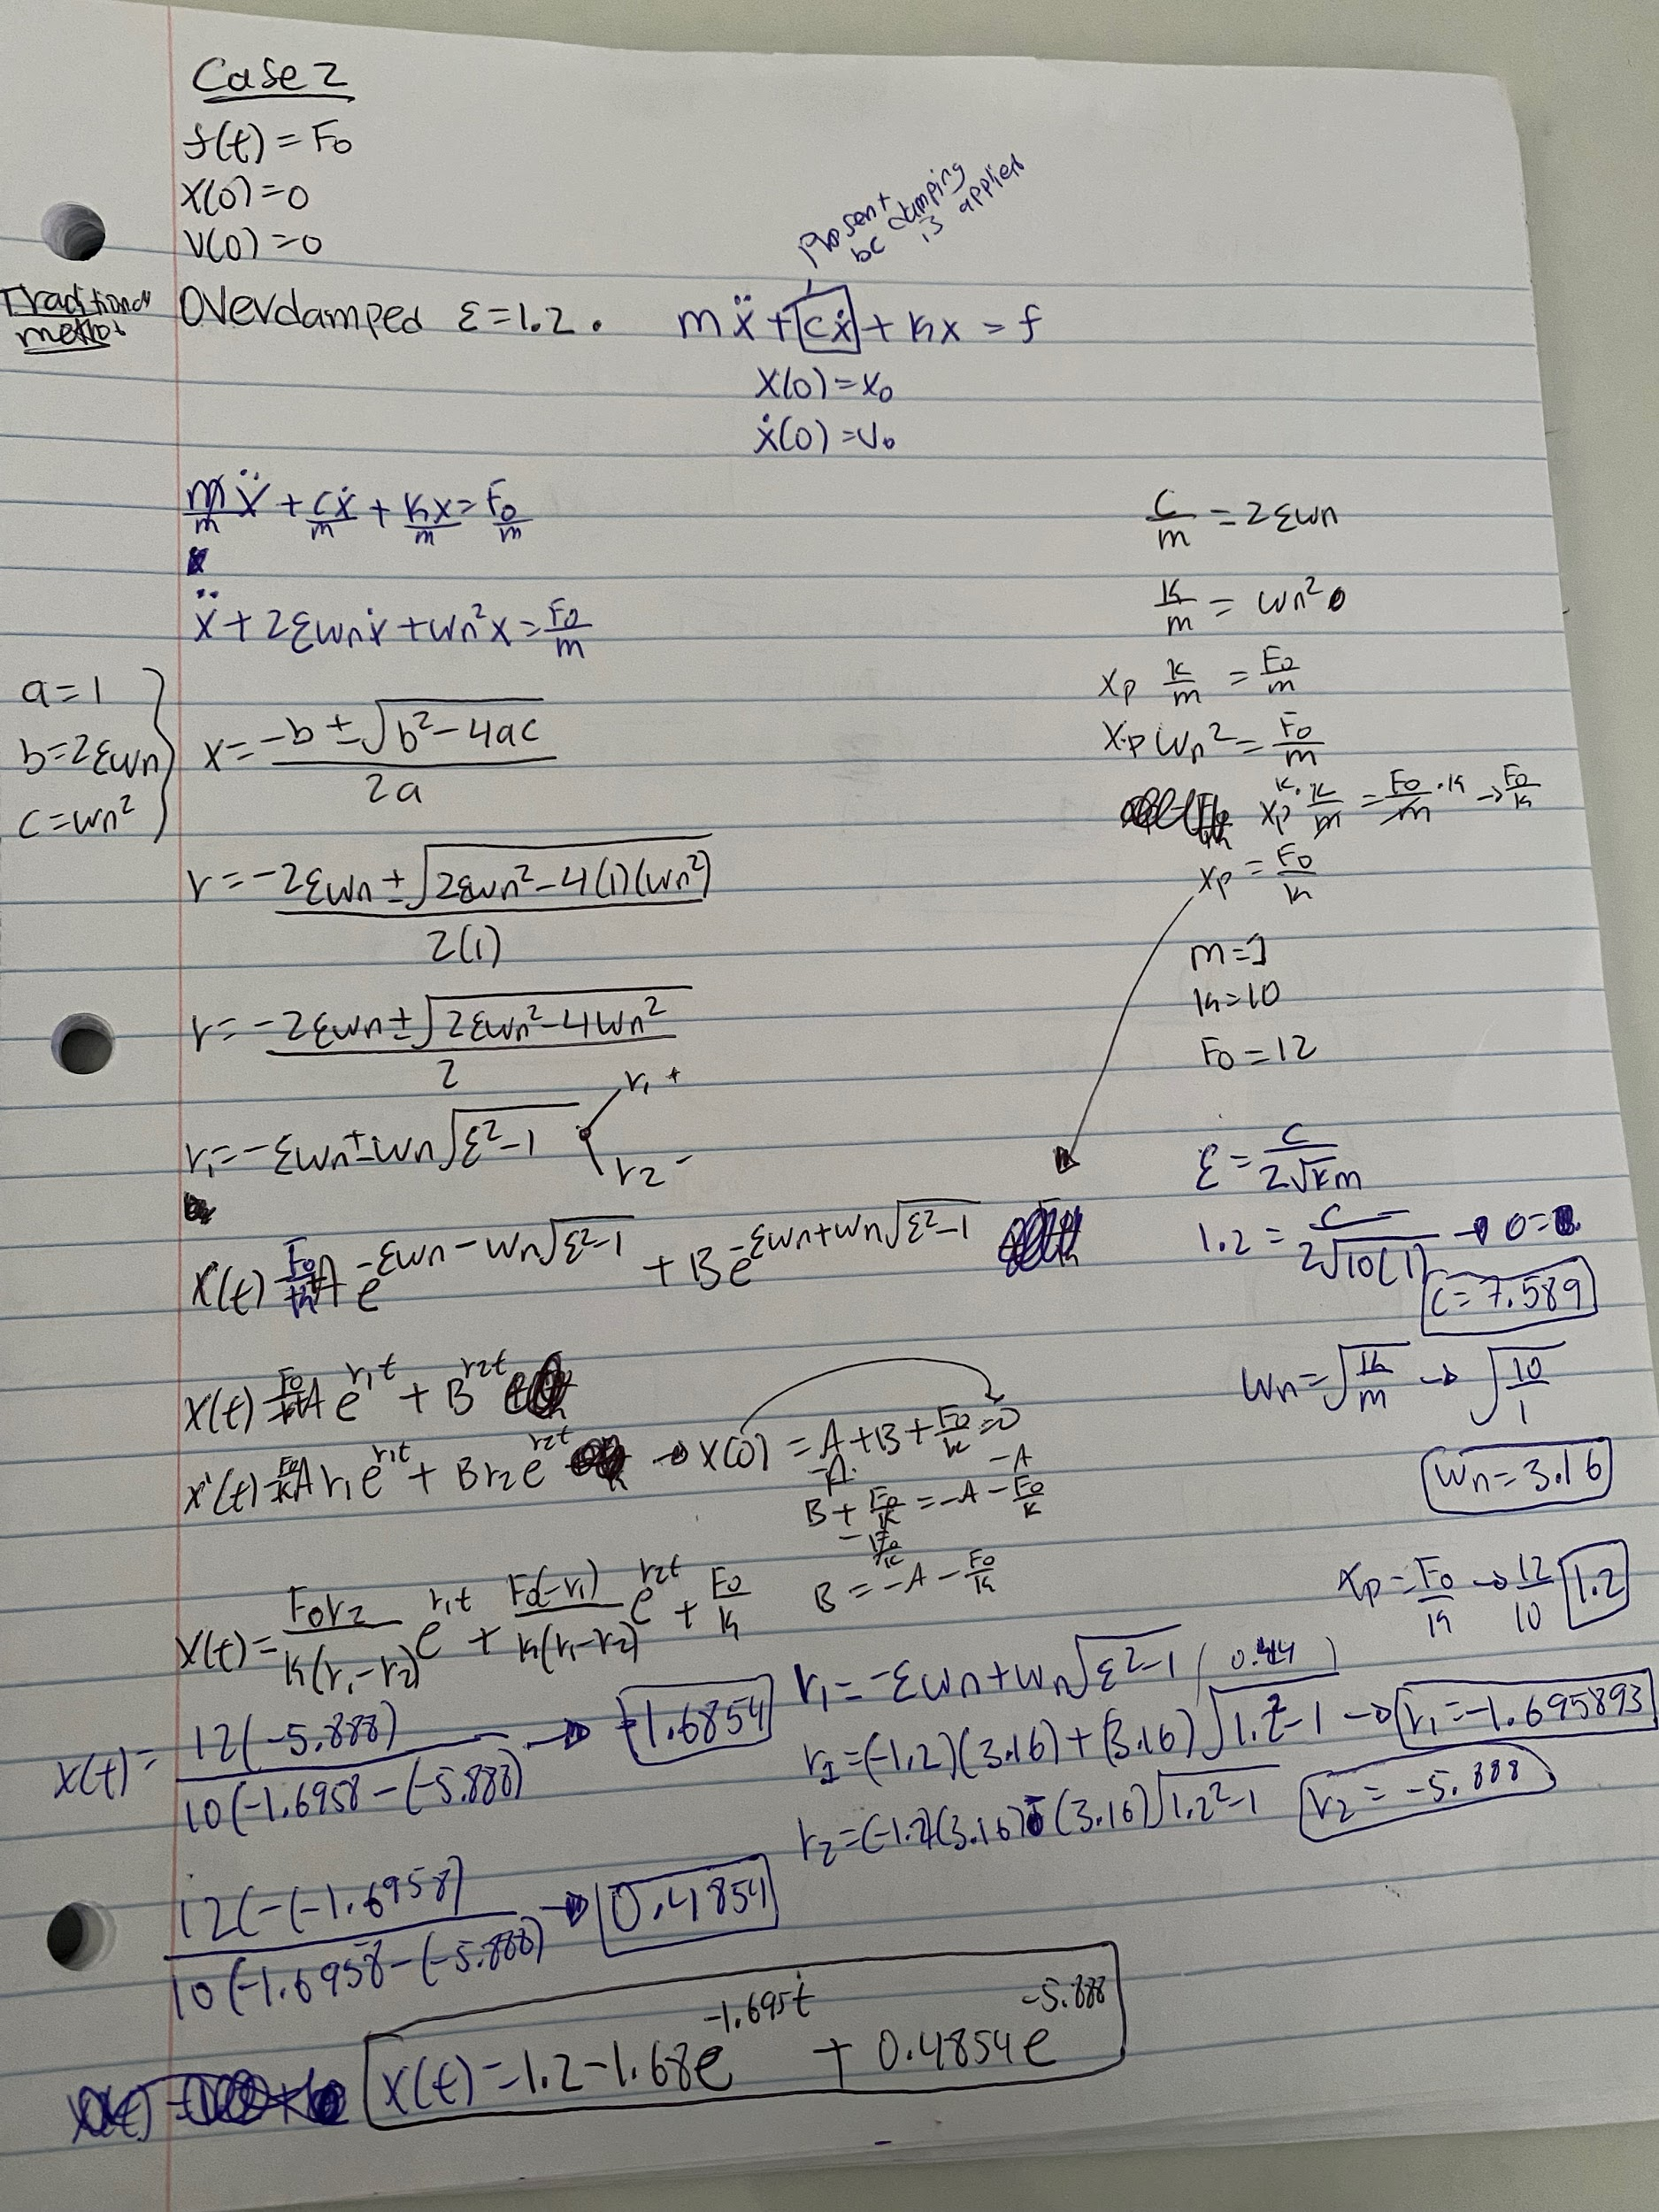 Case 2
f(t) = F0
x(0) = 0
v(0) = 0
Traditional method
Overdamped ε=1.2.
mẍ + cẋ + kx = f
Present bc damping is applied
x(0) = x0
ẋ(0) = v0
m/m ẍ + cẋ/m + kx/m = F0/m
ẍ + 2εwnẋ + wn²x = F0/m
a=1
b=2εwn
c=wn²
x = (-b ± √(b²-4ac))/2a
r = (-2εwn ± √(2εwn²-4(1)(wn²)))/2(1)
r = (-2εwn ± √(2εwn²-4wn²))/2
r1 = -εwn ± wn√(ε²-1)
r1 +
r2 -
x(t) = F0/k + A e^(-εwn - wn√(ε²-1)) + B e^(-εwn + wn√(ε²-1))
x(t) = F0/k + A e^(r1t) + B^(r2t)
x'(t) = F0/k A r1 e^(r1t) + B r2 e^(r2t) → x(0) = A+B+F0/k = 0
-A -A
B + F0/k = -A - F0/k
- F0/k
B = -A - F0/k
x(t) = F0r2/k(r1-r2) e^(r1t) + F0(-r1)/k(r1-r2) e^(r2t) + F0/k
x(t) = 12(-5.888)/10(-1.6958-(-5.888) → -1.6854
12(-(-1.6958)/10(-1.6958-(-5.888) → 0.4854
x(t) = 1.2 - 1.68e^(-1.695t) + 0.4854e^(-5.888)
c/m = 2εwn
k/m = wn²
xp k/m = F0/m
xp wn² = F0/m
k· xp k/m = F0/m ·k → F0/k
xp = F0/k
m=1
k=10
F0=12
ε = c/2√km
1.2 = c/2√10(1) →
c=7.589
wn = √k/m → √10/1
wn=3.16
xp = F0/k → 12/10 1.2
r1 = -εwn + wn√(ε²-1)
0.44
r1 = (-1.2)(3.16) + (3.16)√(1.2²-1) → r1 = -1.695893
r2 = (-1.2)(3.16) - (3.16)√(1.2²-1) r2 = -5.888